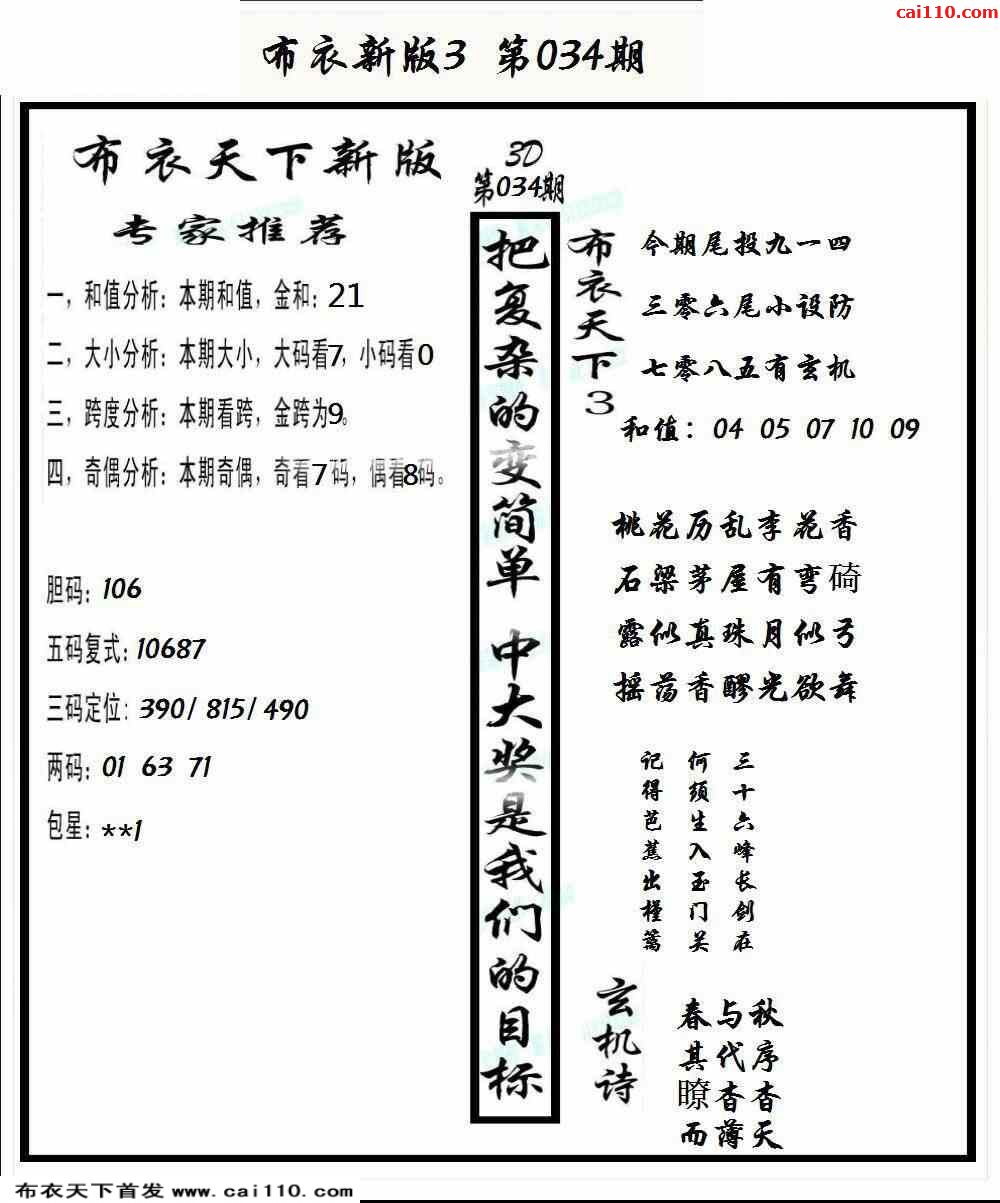 cai110.com
布衣新版3 第034期
布衣天下新版
专家推荐
一，和值分析：本期和值，金和：21
二，大小分析：本期大小，大码看7，小码看0
三，跨度分析：本期看跨，金跨为9。
四，奇偶分析：本期奇偶，奇看7码，偶看8码。
胆码：106
五码复式：10687
三码定位：390/ 815/ 490
两码：01 63 71
包星：**1
3D
第034期
把复杂的变简单 中大奖是我们的目标
布衣天下3
今期尾投九一四
三零六尾小设防
七零八五有玄机
和值：04 05 07 10 09
桃花历乱李花香
石梁茅屋有弯碕
露似真珠月似弓
摇荡香醪光欲舞
三十六峰长剑在
何须生入玉门关
记得芭蕉出槿篱
玄机诗
春与秋
其代序
瞭杳杳
而薄天
布衣天下首发 www.cai110.com